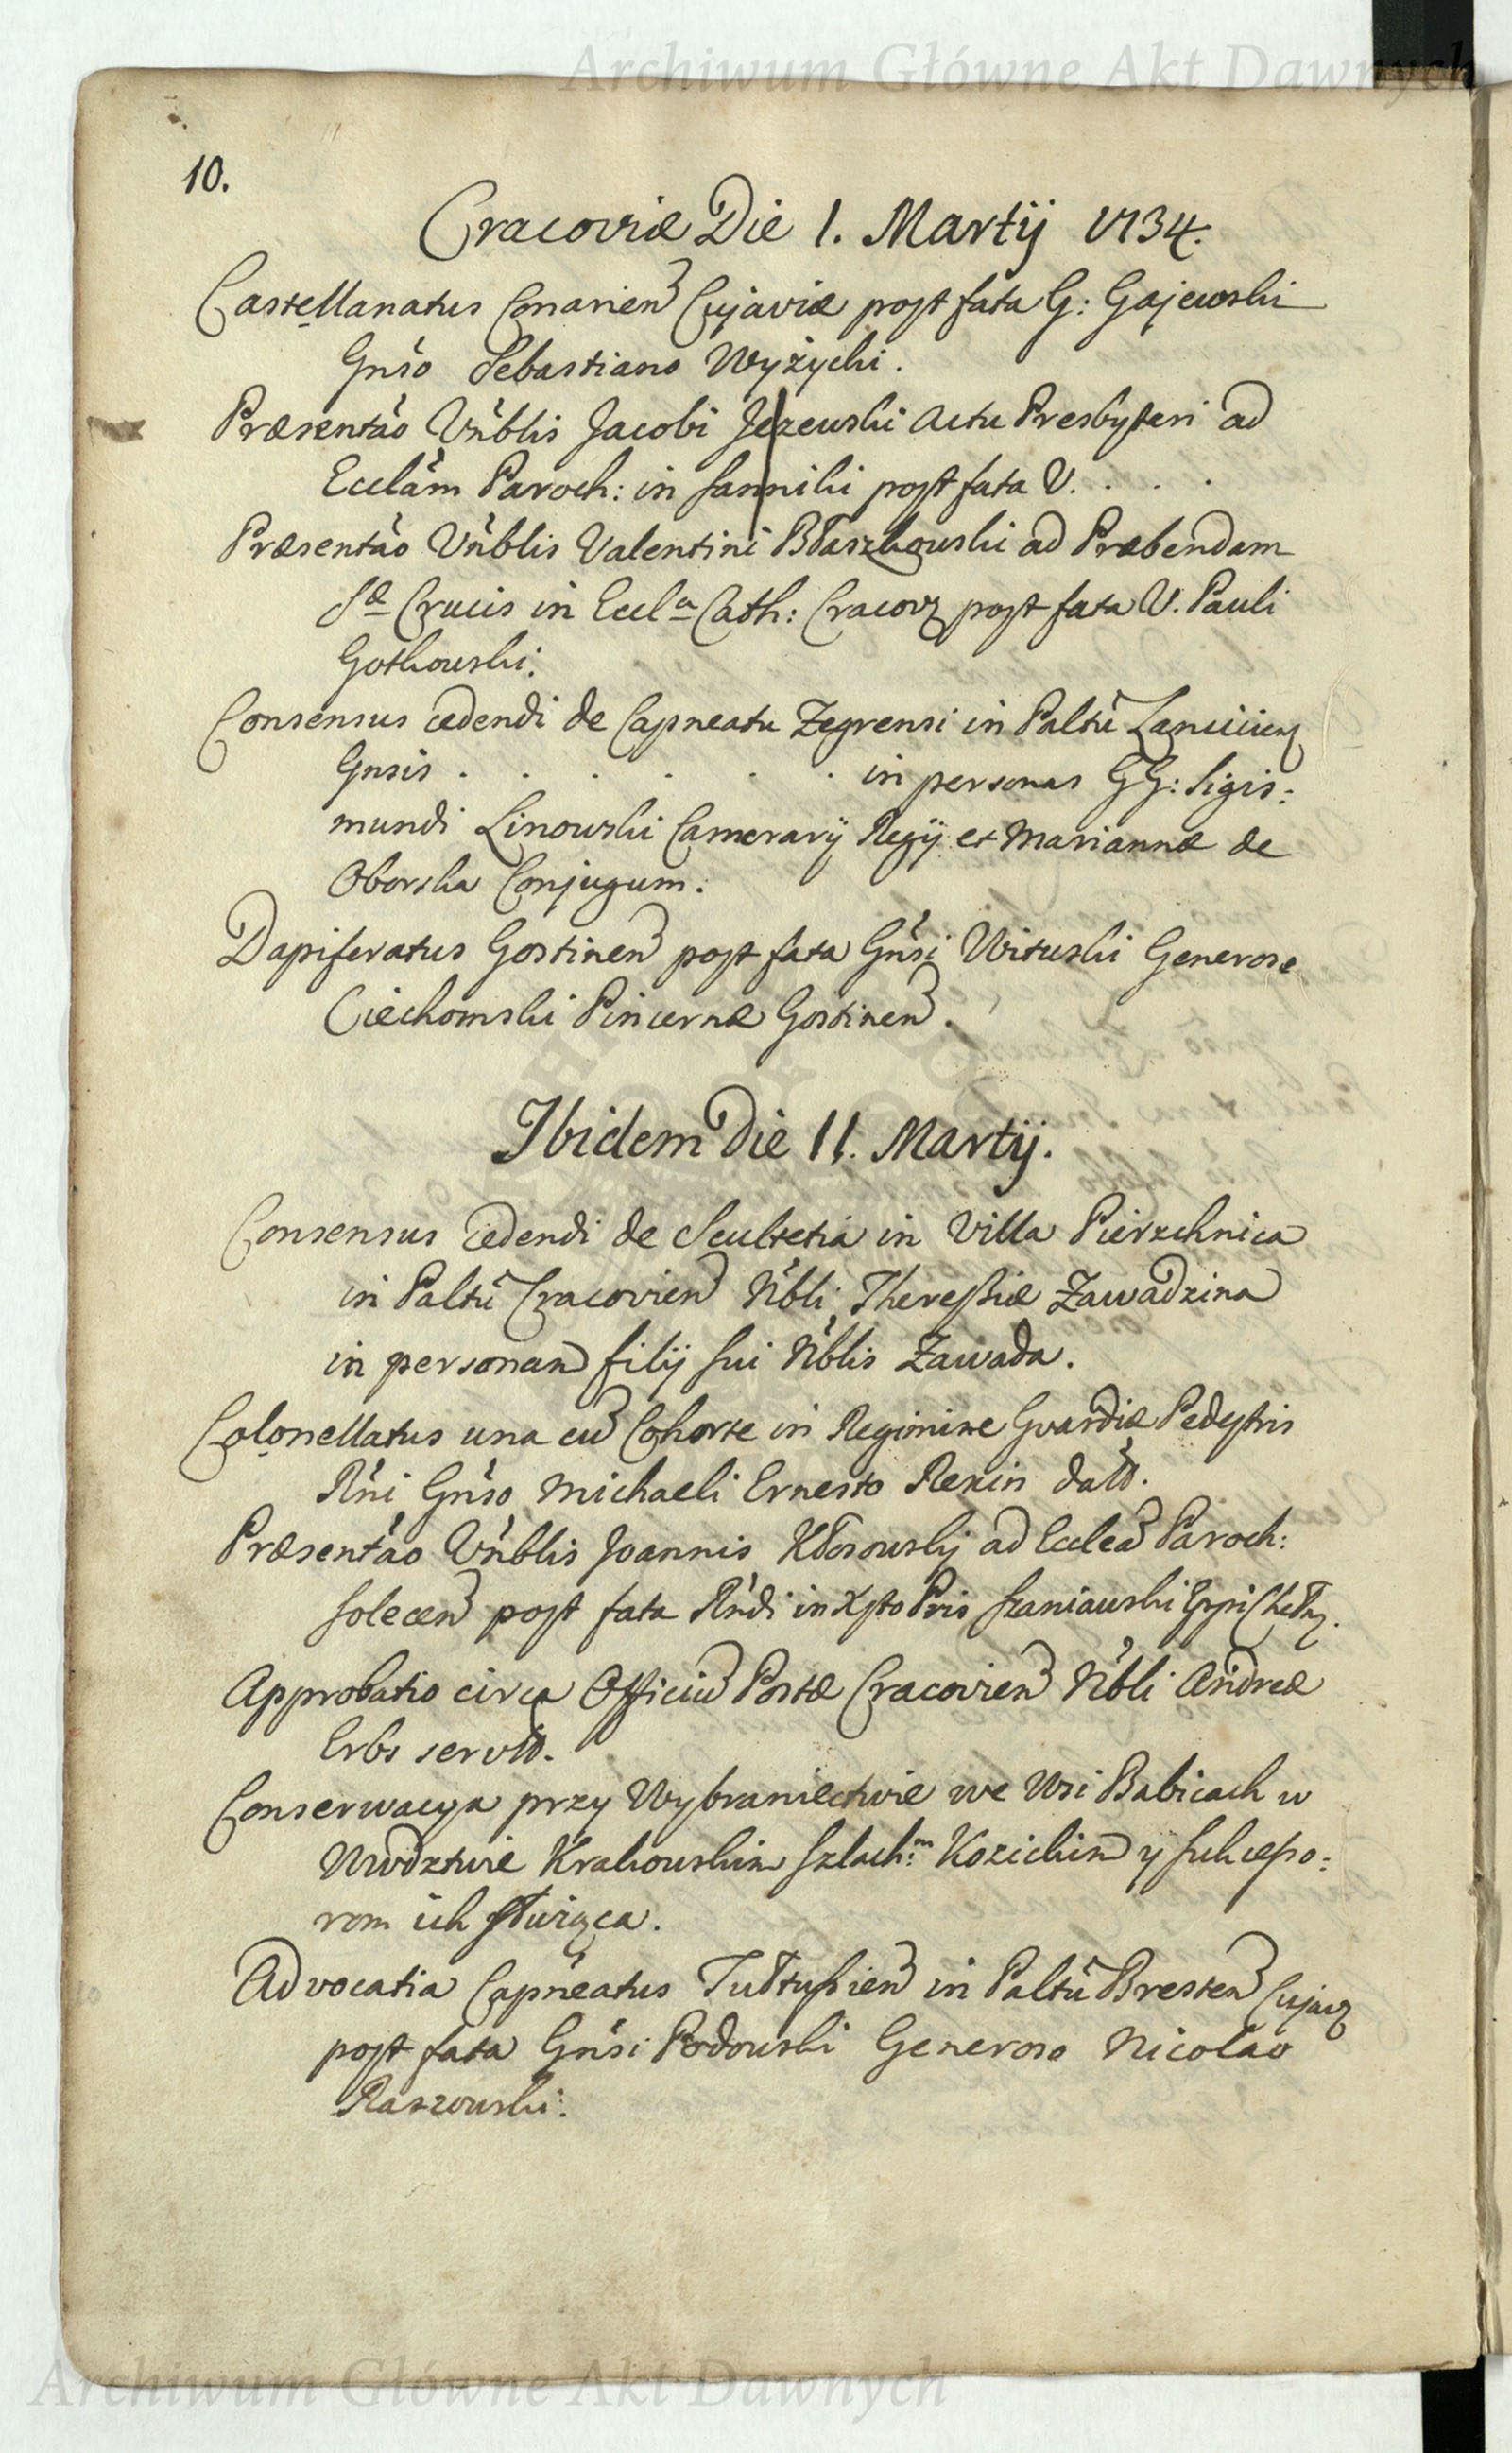 Archiwum Główne Akt Dawnych
10.
Cracoviæ Die 1. Martij 1734.
Castellanatus Conarien Cujaviæ post fata G: Gajewski
Gnso Sebastiano Wyżycki.
Præsentao Vnblis Jacobi Jezewski Actu Presbyteri ad
Ecclam Paroch: in Sanniki post fata V. . . .
Præsentao Vnblis Valentini Błaszkowski ad Præbendam
Sæ Crucis in Eccla Cath: Cracov post fata V. Pauli
Gotkowski.
Consensus cedendi de Capneatu Zegrensi in Paltu
Gnsis . . . . . . in personas GG: Sigis:
mundi Linowski Camerarij Regij et Mariannæ de
Oborska Conjugum.
Dapiferatus Gostinen post fata Gnsi Wituski Generose
Ciechomski Pincernæ Gostinen.
Ibidem Die 11. Martij.
Consensus cedendi de Scultetia in Villa Pierzchnica
in Paltu Cracovien Nbli Theressiæ Zawadzina
in personam filij sui Nblis Zawada.
Colonellatus una cum Cohorte in Regimine Gvardiæ Pedestris
Rni Gnso Michaeli Ernesto Rexin
Præsentao Vnblis Joannis Kłosowskj ad Ecclea Paroch:
Solecen post fata Rndi in Xsto Pris Szaniawski Eppi
Approbatio circa Officiu Postæ Cracovien Nbli Andreæ
Erbs
Conserwacya przy Wybraniectwie we Wsi Babicach w
Wwdztwie Krakowskim Szlach:m Kozickim y Sukcesso:
rom ich służąca.
Advocatia Capneatus in Paltu Bresten Cujav
post fata Gnsi Podowski Generoso Nicolao
Raszowski.
Archiwum Główne Akt Dawnych